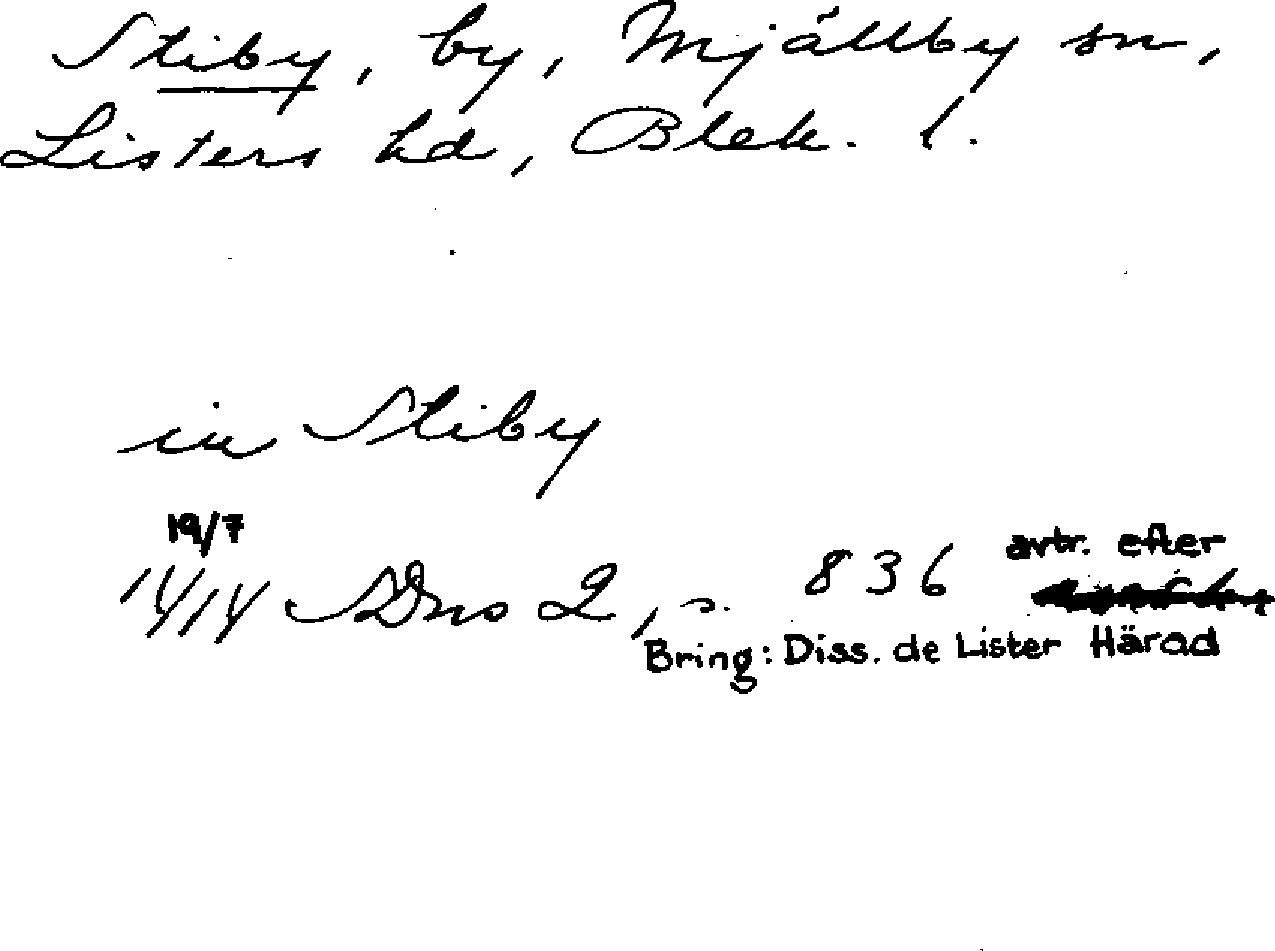 Stiby, by, Mjällby sn,
Listers hd, Blek. l.
in Stiby
19/7
1414 SDns 2, s. 836 avtr. efter
Bring: Diss. de Lister Härad